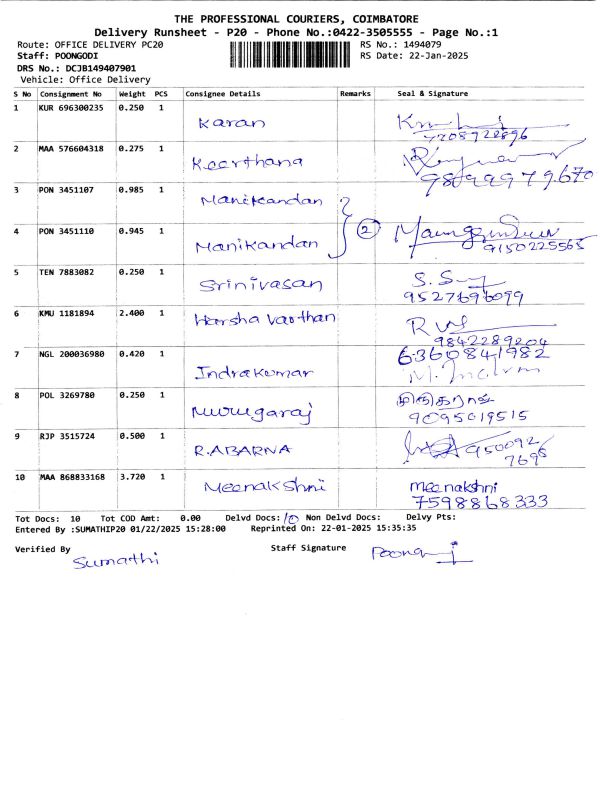 THE PROFESSIONAL COURIERS, COIMBATORE
Delivery Runsheet - P20 - Phone No.:0422-3505555 - Page No.:1
Route: OFFICE DELIVERY PC20 RS No.: 1494079
Staff: POONGODI RS Date: 22-Jan-2025
DRS No.: DCJB149407901
Vehicle: Office Delivery
S No Consignment No Weight PCS Consignee Details Remarks Seal & Signature
1 KUR 696300235 0.250 1 Karan
7208922896
2 MAA 576604318 0.275 1 Keerthana
9899997 9670
3 PON 3451107 0.985 1 Manikandan
4 PON 3451110 0.945 1 Manikandan 2
9150225565
5 TEN 7883082 0.250 1 Srinivasan
9527696099
6 KMU 1181894 2.400 1 Harsha Vardhan
9842289204
7 NGL 200036980 0.420 1 Indrakumar 6360841982
8 POL 3269780 0.250 1 Murugaraj முருகராஜ்
9095019515
9 RJP 3515724 0.500 1 R.ABARNA 950092
7695
10 MAA 868833168 3.720 1 Meenakshni meenakshni
7598868333
Tot Docs: 10 Tot COD Amt: 0.00 Delvd Docs: 10 Non Delvd Docs: Delvy Pts:
Entered By :SUMATHIP20 01/22/2025 15:28:00 Reprinted On: 22-01-2025 15:35:35
Verified By Sumathi Staff Signature